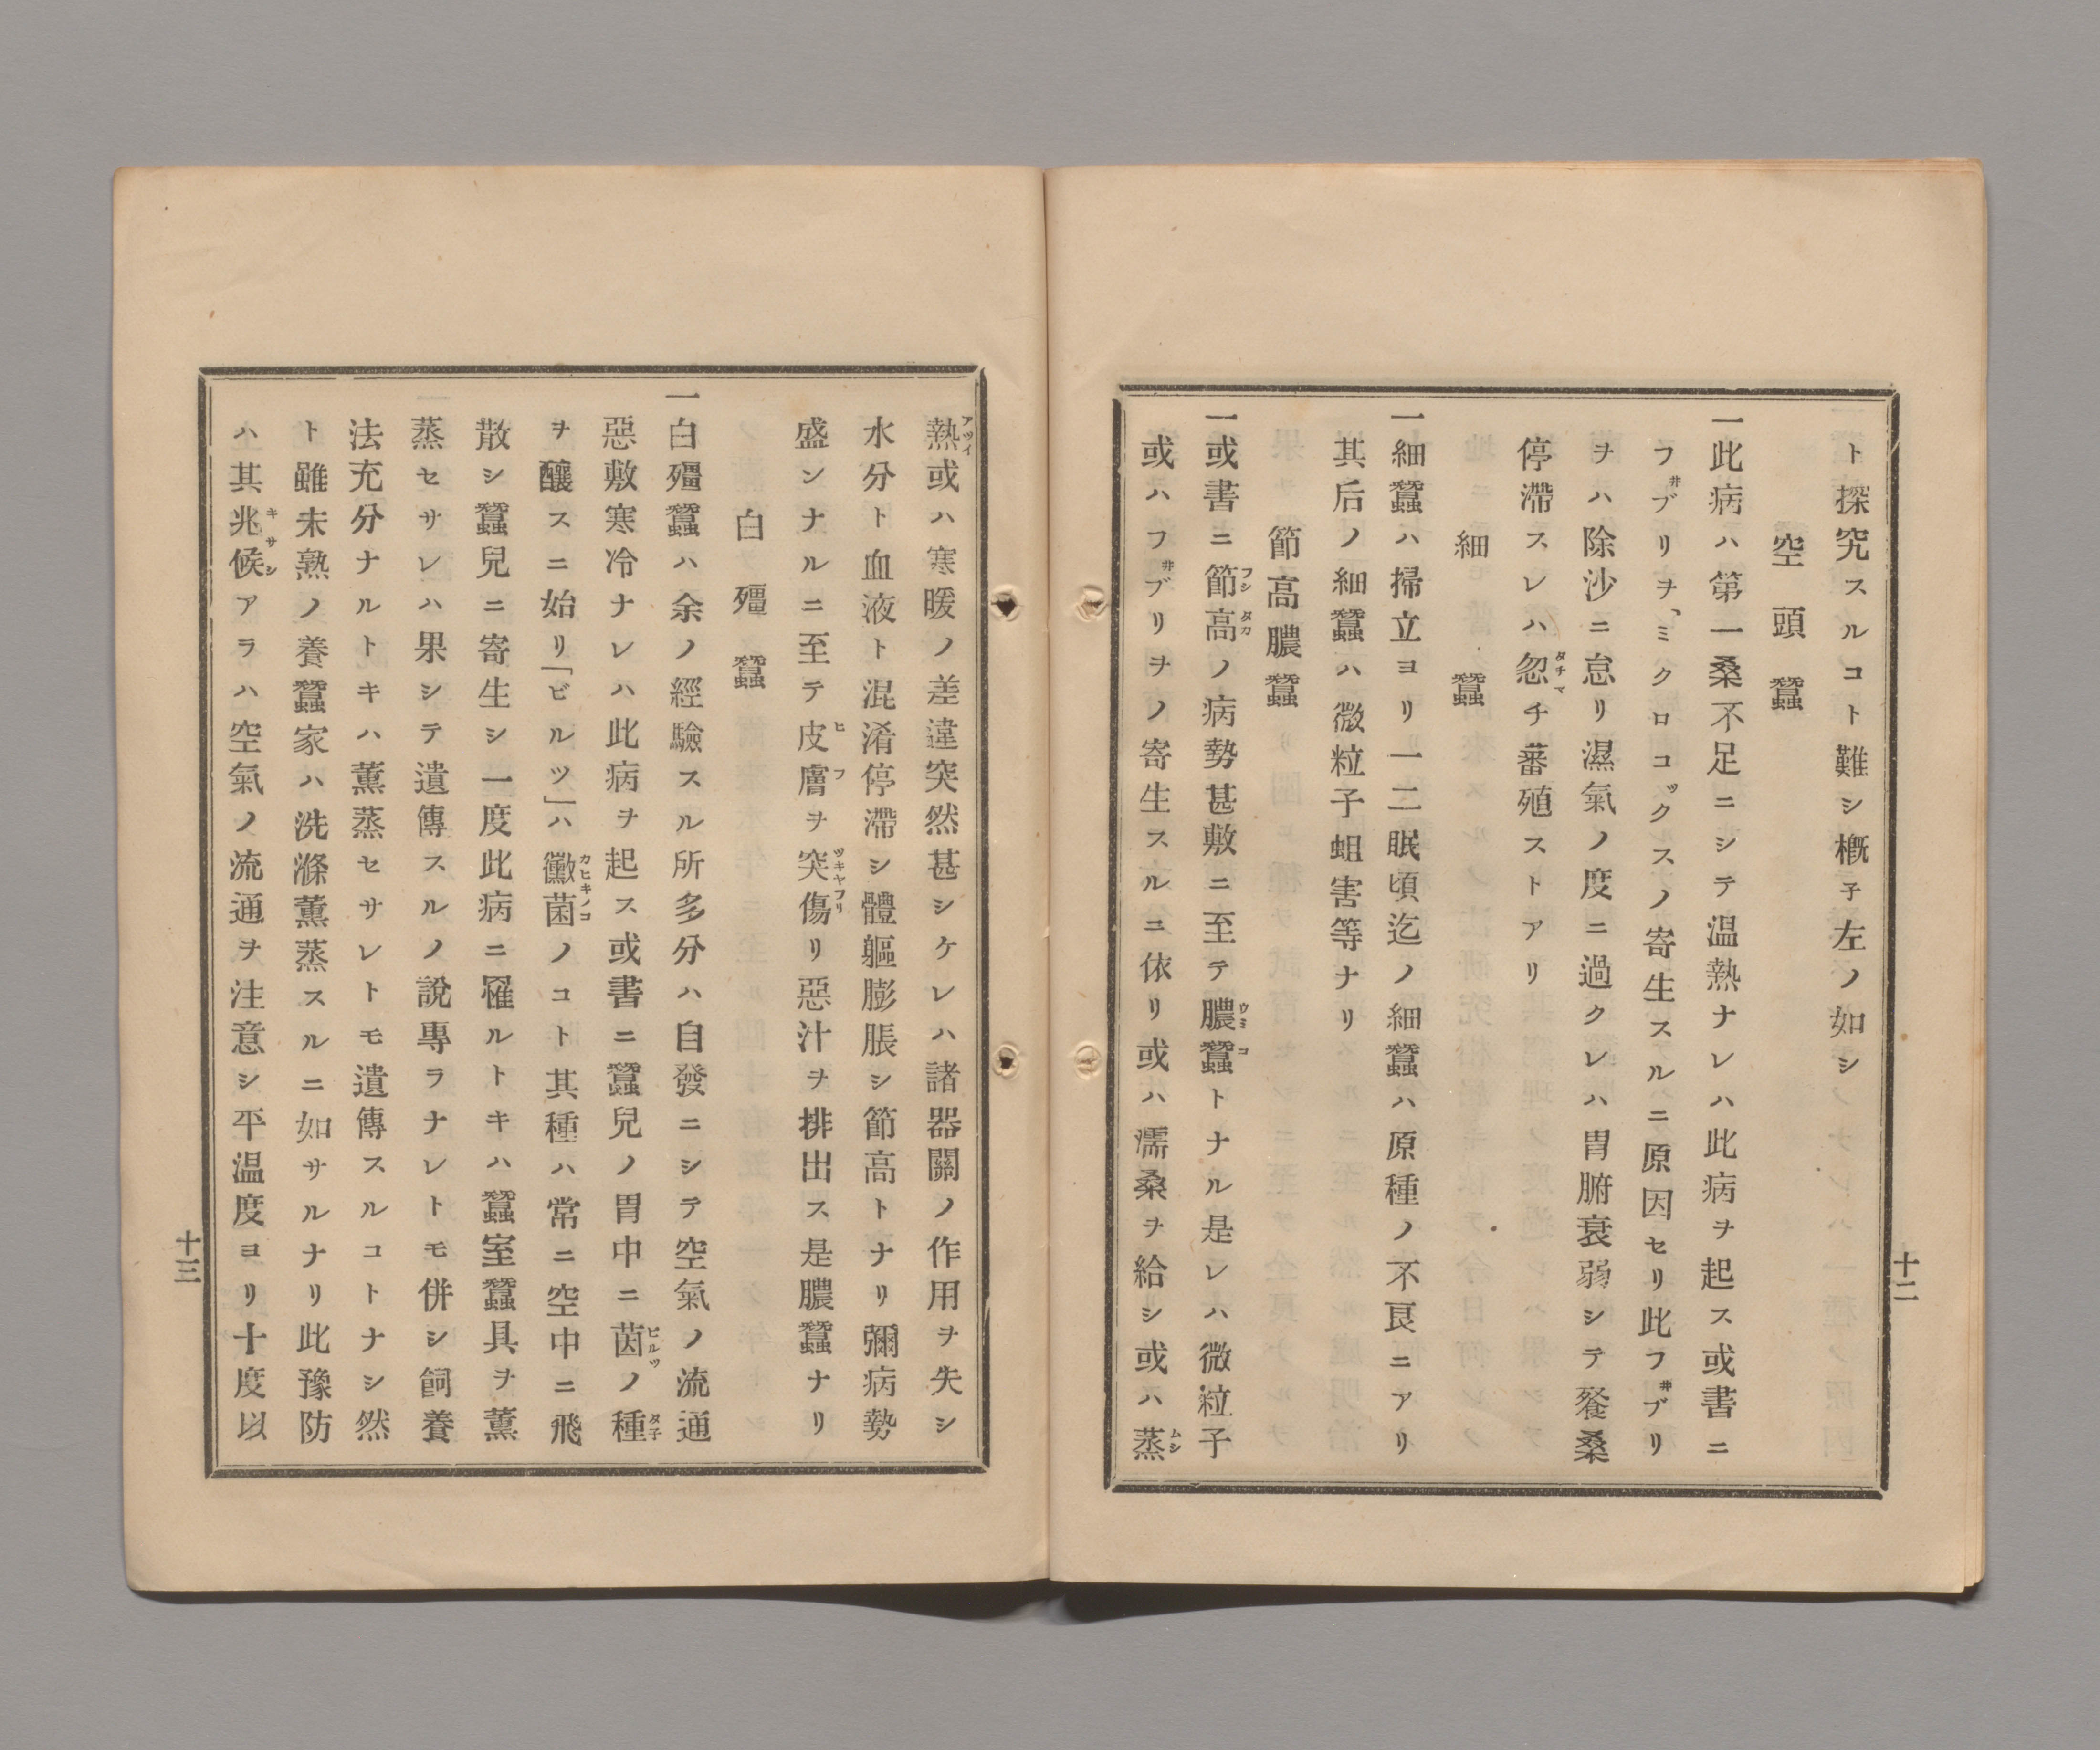 ト探究スルコト難シ概子左ノ如シ
空頭蠶
一此病ハ第一桑不足ニシテ温熱ナレハ此病ヲ起ス或書ニ
フ井ブリヲヽミクロコックスノ寄生スルニ原因セリ此フ井ブリ
ヲハ除沙ニ怠リ濕氣ノ度ニ過クレハ胃腑衰弱シテ餐桑
停滯スレハ忽タチマチ蕃殖ストアリ
細蠶
一細蠶ハ掃立ヨリ一二眠頃迄ノ細蠶ハ原種ノ不良ニアリ
其后ノ細蠶ハ微粒子蛆害等ナリ
節高膿蠶
一或書ニ節フシ高タカノ病勢甚敷ニ至テ膿ウミ蠶コトナル是レハ微粒子
或ハフ井ブリヲノ寄生スルニ依リ或ハ濡桑ヲ給シ或ハ蒸ムシ
十二
熱アツイ或ハ寒暖ノ差違突然甚シケレハ諸器關ノ作用ヲ失シ
水分ト血液ト混淆停滯シ體軀膨脹シ節高トナリ彌病勢
盛ンナルニ至テ皮ヒ膚フヲ突傷ツキヤフリリ惡汁ヲ排出ス是膿蠶ナリ
白殭蠶
一白殭蠶ハ余ノ經驗スル所多分ハ自發ニシテ空氣ノ流通
惡敷寒冷ナレハ此病ヲ起ス或書ニ蠶兒ノ胃中ニ茵ビルツノ種タ子
ヲ釀スニ始リ「ビルツ」ハ黴菌カヒキノコノコト其種ハ常ニ空中ニ飛
散シ蠶兒ニ寄生シ一度此病ニ罹ルトキハ蠶室蠶具ヲ薫
蒸セサレハ果シテ遺傳スルノ說專ラナレトモ併シ飼養
法充分ナルトキハ薫蒸セサレトモ遺傳スルコトナシ然
ト雖未熟ノ養蠶家ハ洗滌薫蒸スルニ如サルナリ此豫防
ハ其兆候キサシアラハ空氣ノ流通ヲ注意シ平温度ヨリ十度以
十三